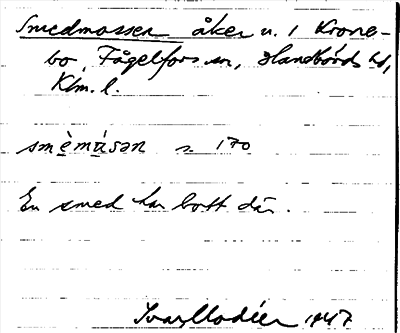 Smedmossen åker u. 1 Krone-
bo, Fågelfors sn, Handbörds hd,
Klm. l.
smè̱mu̱sən s. 170
En smed har bott där.
Ivar Modéer 1947